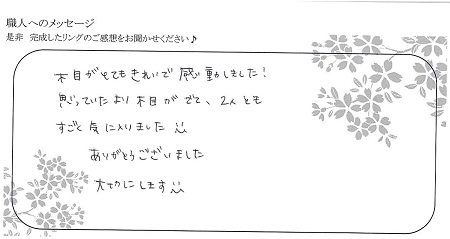 職人へのメッセージ
是非 完成したリングのご感想をお聞かせください♪
木目がとてもきれいで感動しました!
思っていたより木目がでて、2人とも
すごく気に入りました
ありがとうございました
大切にします